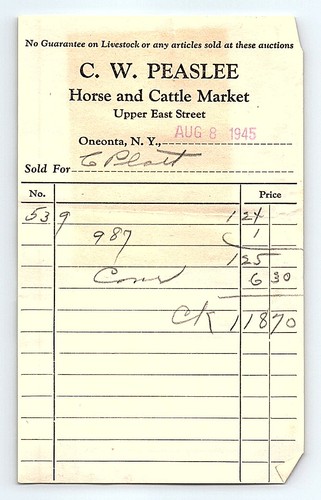 No Guarantee on Livestock or any articles sold at these auctions
C. W. PEASLEE
Horse and Cattle Market
Upper East Street
Oneonta, N. Y., AUG 8 1945
Sold For C Platt
No. Price
539 124
987 1
125
Com 6 30
CK 118 70